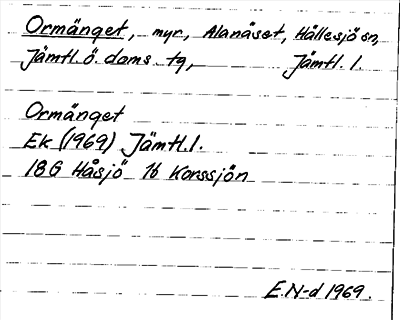 Ormänget, myr, Alanäset, Hällesjö sn,
Jämtl. ö. doms. tg, Jämtl. l.
Ormänget
Ek (1969) Jämtl. l.
18G Håsjö 1b Korssjön
E.N-d 1969.